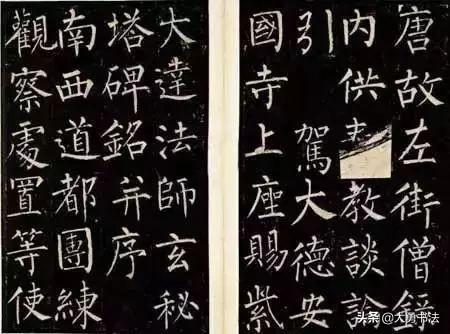 唐故左街僧録
内供教談論
引駕大德安
國寺上座賜紫
大達法師玄秘
塔碑銘并序
南西道都團練
觀察處置等使
头条 @大勇书法